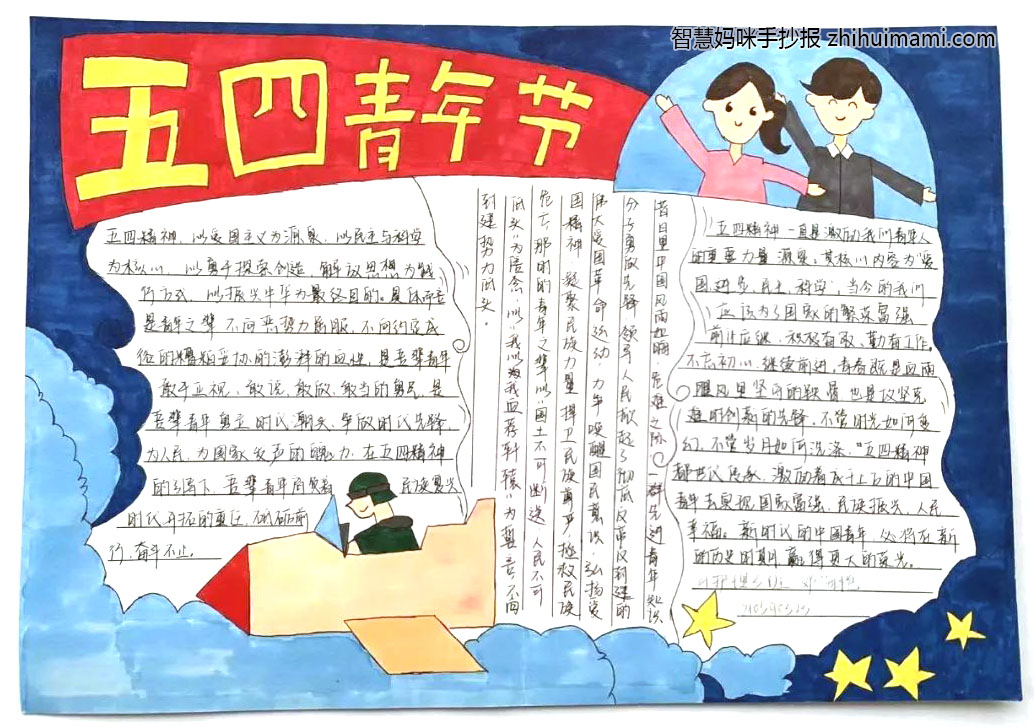 智慧妈咪手抄报 zhihuimami.com
五四青年节
五四精神，以爱国主义为源泉，以民主与科学
为核心，以勇于探索创造、解放思想为践
行方式，以振兴中华为最终目的。具体而言
是青年之辈不向恶势力屈服，不向约定成
妥协的澎拜的血性，是吾辈青年
敢于正视、敢说、敢做、敢当的勇气，是
吾辈青年勇立时代潮头、争做时代先锋
为人民、为国家发声的魄力，在五四精神
的引领下，吾辈青年肩负着 民族复兴
时代开拓的重任，砥砺前
行，奋斗不止。
昔日里中国风雨如晦，危难之际，一群先进青年知识
分子勇做先锋，领导人民掀起了彻底反帝反封建的
伟大爱国革命运动，力争唤醒国民意识，弘扬爱
国精神，凝聚民族力量，捍卫民族尊严，拯救民族
危亡，那时的青年之辈以“国土不可断送、人民不可
低头”为信念，以“我以我血荐轩辕”为誓言，不向
封建势力低头。
五四精神一直是激励我们青年人
的重要力量源泉。其核心内容为“爱
国、进步、民主、科学”，当今的我们
应该为了国家的繁荣富强
前仆后继、积极奋取、勤奋工作。
不忘初心，继续前进，青春既是血雨
腥风里坚守的铁骨，也是仅坚克
难时创新的先锋，不管时光如何变
幻，不管岁月如何洗涤，“五四精神
都书以传承，激励着成千上万的中国
青年去实现国家富强、民族振兴、人民
幸福。新时代的中国青年，必将在新
的历史时期赢得更大的荣光。